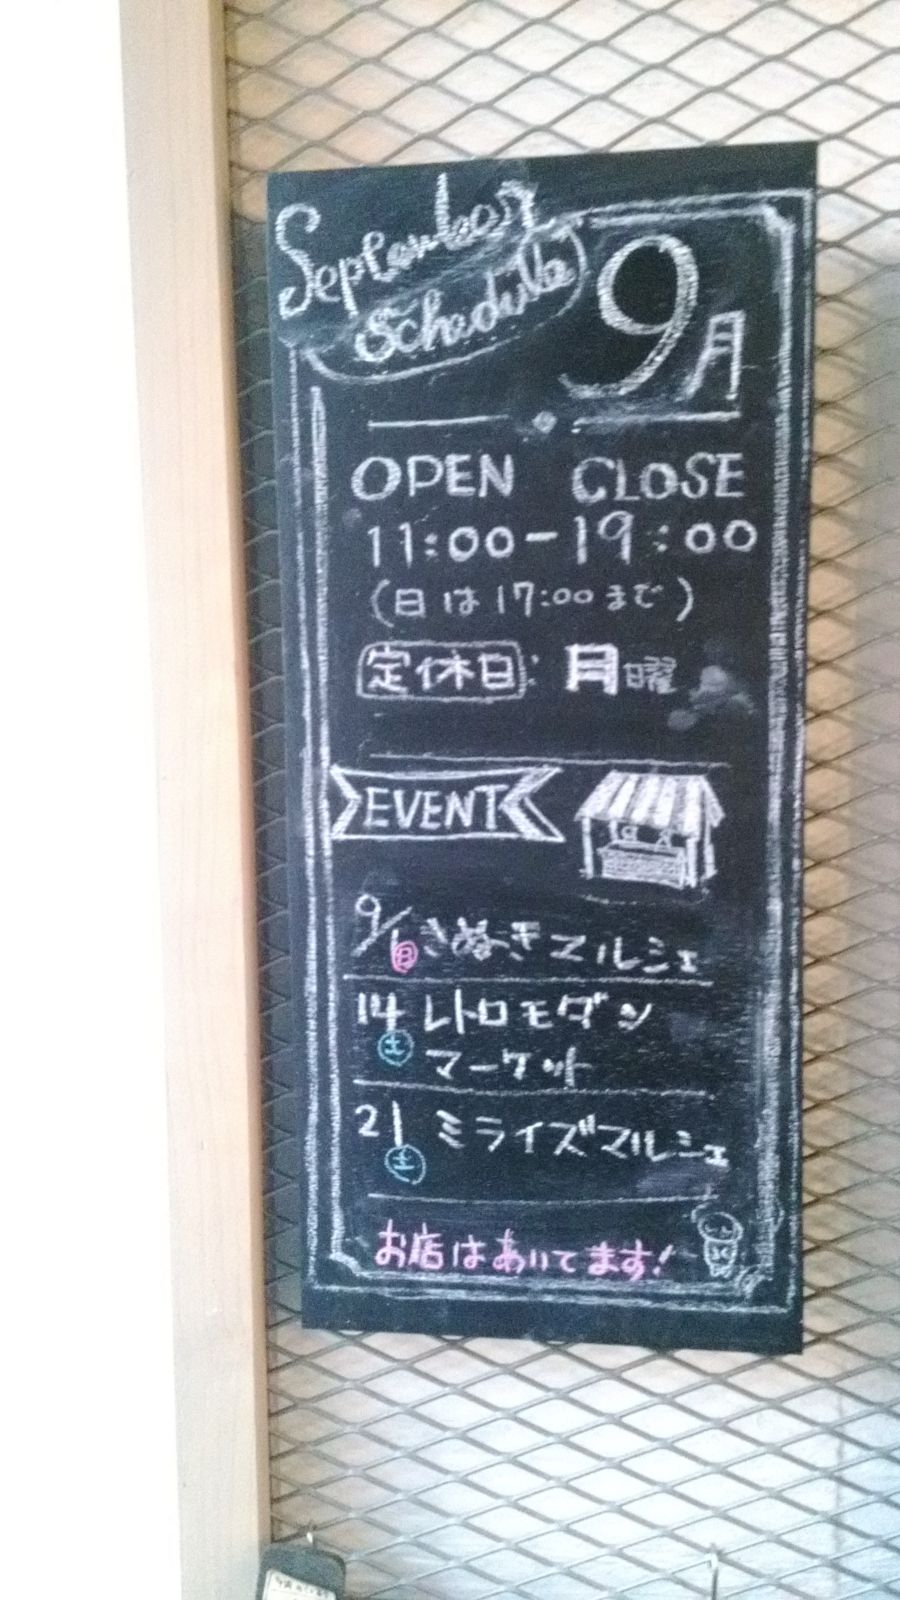 September
Schedule
9月
OPEN CLOSE
11:00-19:00
(日は17:00まで)
定休日: 月曜
EVENT
9/1 日 きぬきマルシェ
14 レトロモダン
土 マーケット
21 ミライズマルシェ
土
お店はあいてます!